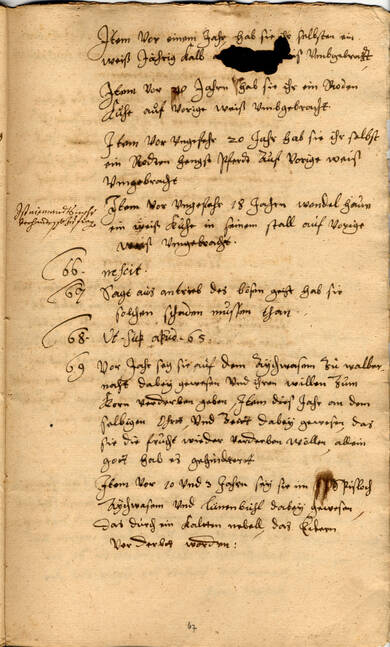 Item vor einem Jahr hab sie ihr selbsten ein
weiß Jährig Kalb weiß Umbgebracht
Item vor 20 Jahren hab sie ihr ein Roden
Kuhe auf vorige weiß Umbgebracht
Item vor Ungefehr 20 Jahr hab sie ihr selbst
ein Rodten hengst Pferdt auf vorige weiß
Umgebracht
Item vor Ungefehr 18 Jahren
ein weiß Kuhe in seinem stall auf vorige
weiß Umgebracht.
66. nescit.
67 Sagt aus antrieb des bösen geist hab sie
solchen schaden müssen than
68. Ut sup. 65.
69 Vor Jahr sey sie auf dem zu walber
nacht dabey gewesen Und ihren willen zum
Korn verderben geben, Item dies Jahr an dem
selbigen Ort Und Zeitt dabey gewesen das
sie die frucht wieder verderben wöllen, allein
gott hab es gehindtert
Item vor 10 und 3 Jahren sey sie im
und dabey gewesen
das durch ein Kalten nebell, das Eckern
verderbet worden:
67